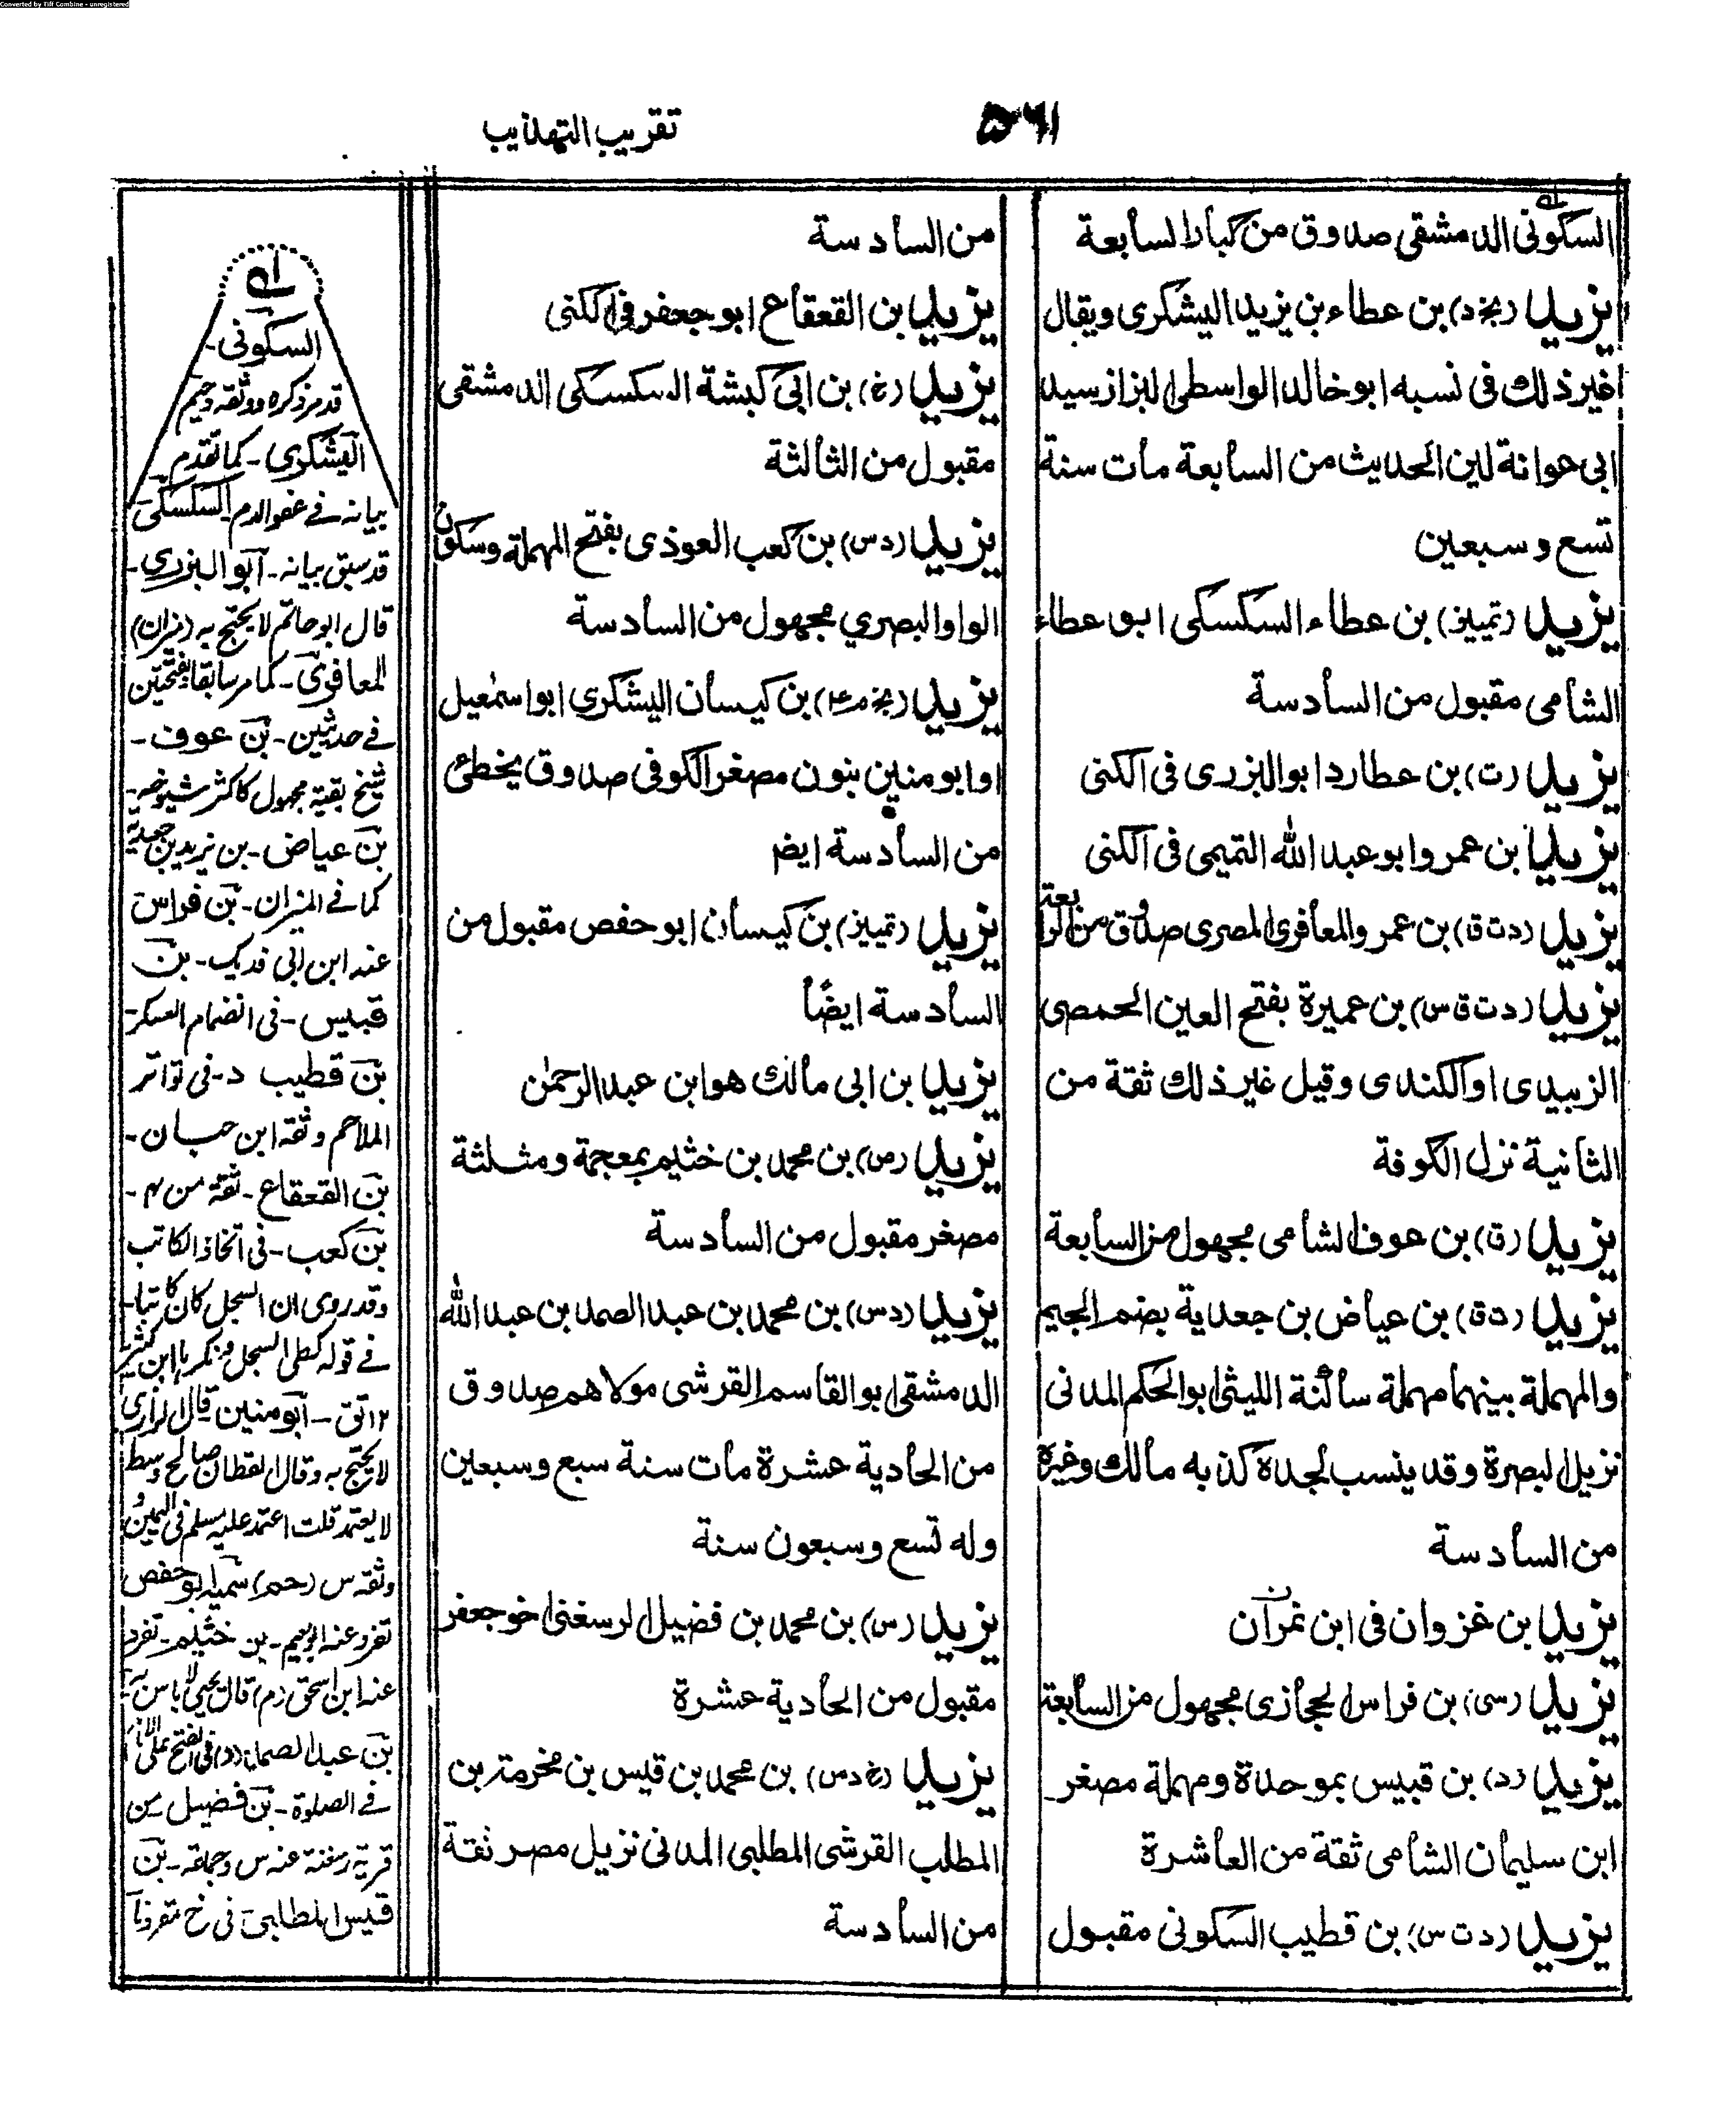 Converted by Tiff Combine - unregistered
٥٦١
تقريب التهذيب
السكونى الدمشقى صدوق من كبار السابعة
يزيد (بخ د) بن عطاء بن يزيد اليشكرى ويقال
غير ذلك فى نسبه ابو خالد الواسطى البزاز سيد
ابى عوانة لين الحديث من السابعة مات سنة
تسع وسبعين
يزيد (تمييز) بن عطاء السكسكى ابو عطاء
الشامى مقبول من السادسة
يزيد (ت) بن عطارد ابو البزرى فى الكنى
يزيد بن عمرو ابو عبد الله التميمى فى الكنى
يزيد (د ت ق) بن عمرو المعافرى المصرى صدوق من الرابعة
يزيد (د ت ق س) بن عميرة بفتح العين الحمصى
الزبيدى او الكندى وقيل غير ذلك ثقة من
الثانية نزل الكوفة
يزيد (ق) بن عوف الشامى مجهول من السابعة
يزيد (ت ق) بن عياض بن جعدبة بضم الجيم
والمهملة بينهما مهملة ساكنة الليثى ابو الحكم المدنى
نزيل البصرة وقد ينسب لجده كذبه مالك وغيره
من السادسة
يزيد بن غزوان فى ابن نمران
يزيد (سى) بن فراس الحجازى مجهول من السابعة
يزيد (د) بن قبيس بموحدة ومهملة مصغر
ابن سليمان الشامى ثقة من العاشرة
يزيد (د ت س) بن قطيب السكونى مقبول
من السادسة
يزيد بن القعقاع ابو جعفر فى الكنى
يزيد (خ) بن ابى كبشة السكسكى الدمشقى
مقبول من الثالثة
يزيد (د س) بن كعب العوذى بفتح المهملة وسكون
الواو البصري مجهول من السادسة
يزيد (بخ م ٤) بن كيسان اليشكري ابو اسمعيل
او ابو منين بنون مصغر الكوفى صدوق يخطئ
من السادسة ايض
يزيد (تمييز) بن كيسان ابو حفص مقبول من
السادسة ايضًا
يزيد بن ابى مالك هو ابن عبد الرحمن
يزيد (ص) بن محمد بن خثيم بمعجمة ومثلثة
مصغر مقبول من السادسة
يزيد (د س) بن محمد بن عبد الصمد بن عبد الله
الدمشقى ابو القاسم القرشى مولاهم صدوق
من الحادية عشرة مات سنة سبع وسبعين
وله تسع وسبعون سنة
يزيد (س) بن محمد بن فضيل الرسغنى اخو جعفر
مقبول من الحادية عشرة
يزيد (خ د س) بن محمد بن قيس بن مخرمة بن
المطلب القرشى المطلبى المدنى نزيل مصر ثقة
من السادسة
السكونى-
قد مر ذكره ووثقه دحيم
اليشكري- كما تقدم
بيانه فے عفو الدم السكسكى
قد سبق بيانه- ابو البزرى-
قال ابو حاتم لا يحتج به (ميزان)
المعافرى- كما مر سابقا بفتحتين
فے حديثين- بن عوف-
شيخ بقية مجهول كاكثر شيوخه-
بن عياض- بن يزيد بن جعدبة
كما فے الميزان- بن فراس
عنه ابن ابى فديك- بن
قبيس- فى انضمام العسكر
بن قطيب د- فى تواتر
الملاحم وثقه ابن حبان-
بن القعقاع- ثقة من ٤-
بن كعب- فى اتخاذ الكاتب
وقد روى ان السجل كان كاتبا-
فے قوله كطى السجل ابن كثير
١٢ تق- ابو منين قال الرازى
لا يحتج به وقال القطان صالح وسط
لا يعتمد قلت اعتمد عليه مسلم فى اليمين و
وثقه س (حم) سميه ابو حفص
تفرد عنه ابو نعيم- بن خثيم- تفرد
عنه ابن اسحق (م) قال يحيى لا باس به
بن عبد الصمد (د) فى الفتح على الامام
فے الصلوة- بن فضيل من
قرية رسغنة عنه س وجماعة- بن
قيس المطلبى فى خ متفردا